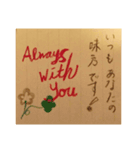 Always
With
you
いつもあなたの
味方です!!